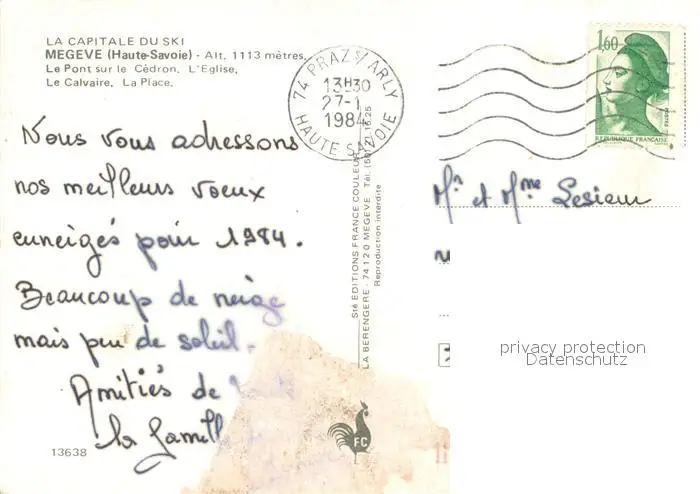 LA CAPITALE DU SKI
MEGEVE (Haute-Savoie) - Alt. 1113 mètres.
Le Pont sur le Cèdron, L'Eglise,
Le Calvaire, La Place.
74 PRAZ S/ARLY
13H30
27-1
1984
HAUTE SAVOIE
1,60
POSTES
REPUBLIQUE FRANÇAISE
Nous vous adressons
nos meilleurs voeux
enneigés pour 1984.
Beaucoup de neige
mais peu de soleil.
Amitiés de
la famill
Mr et Mme Lesieur
Sté EDITIONS FRANCE COULEUR
LA BERENGERE - 74120 MEGEVE - Tél. 16.25
Reproduction interdite
privacy protection
Datenschutz
F.C
13638